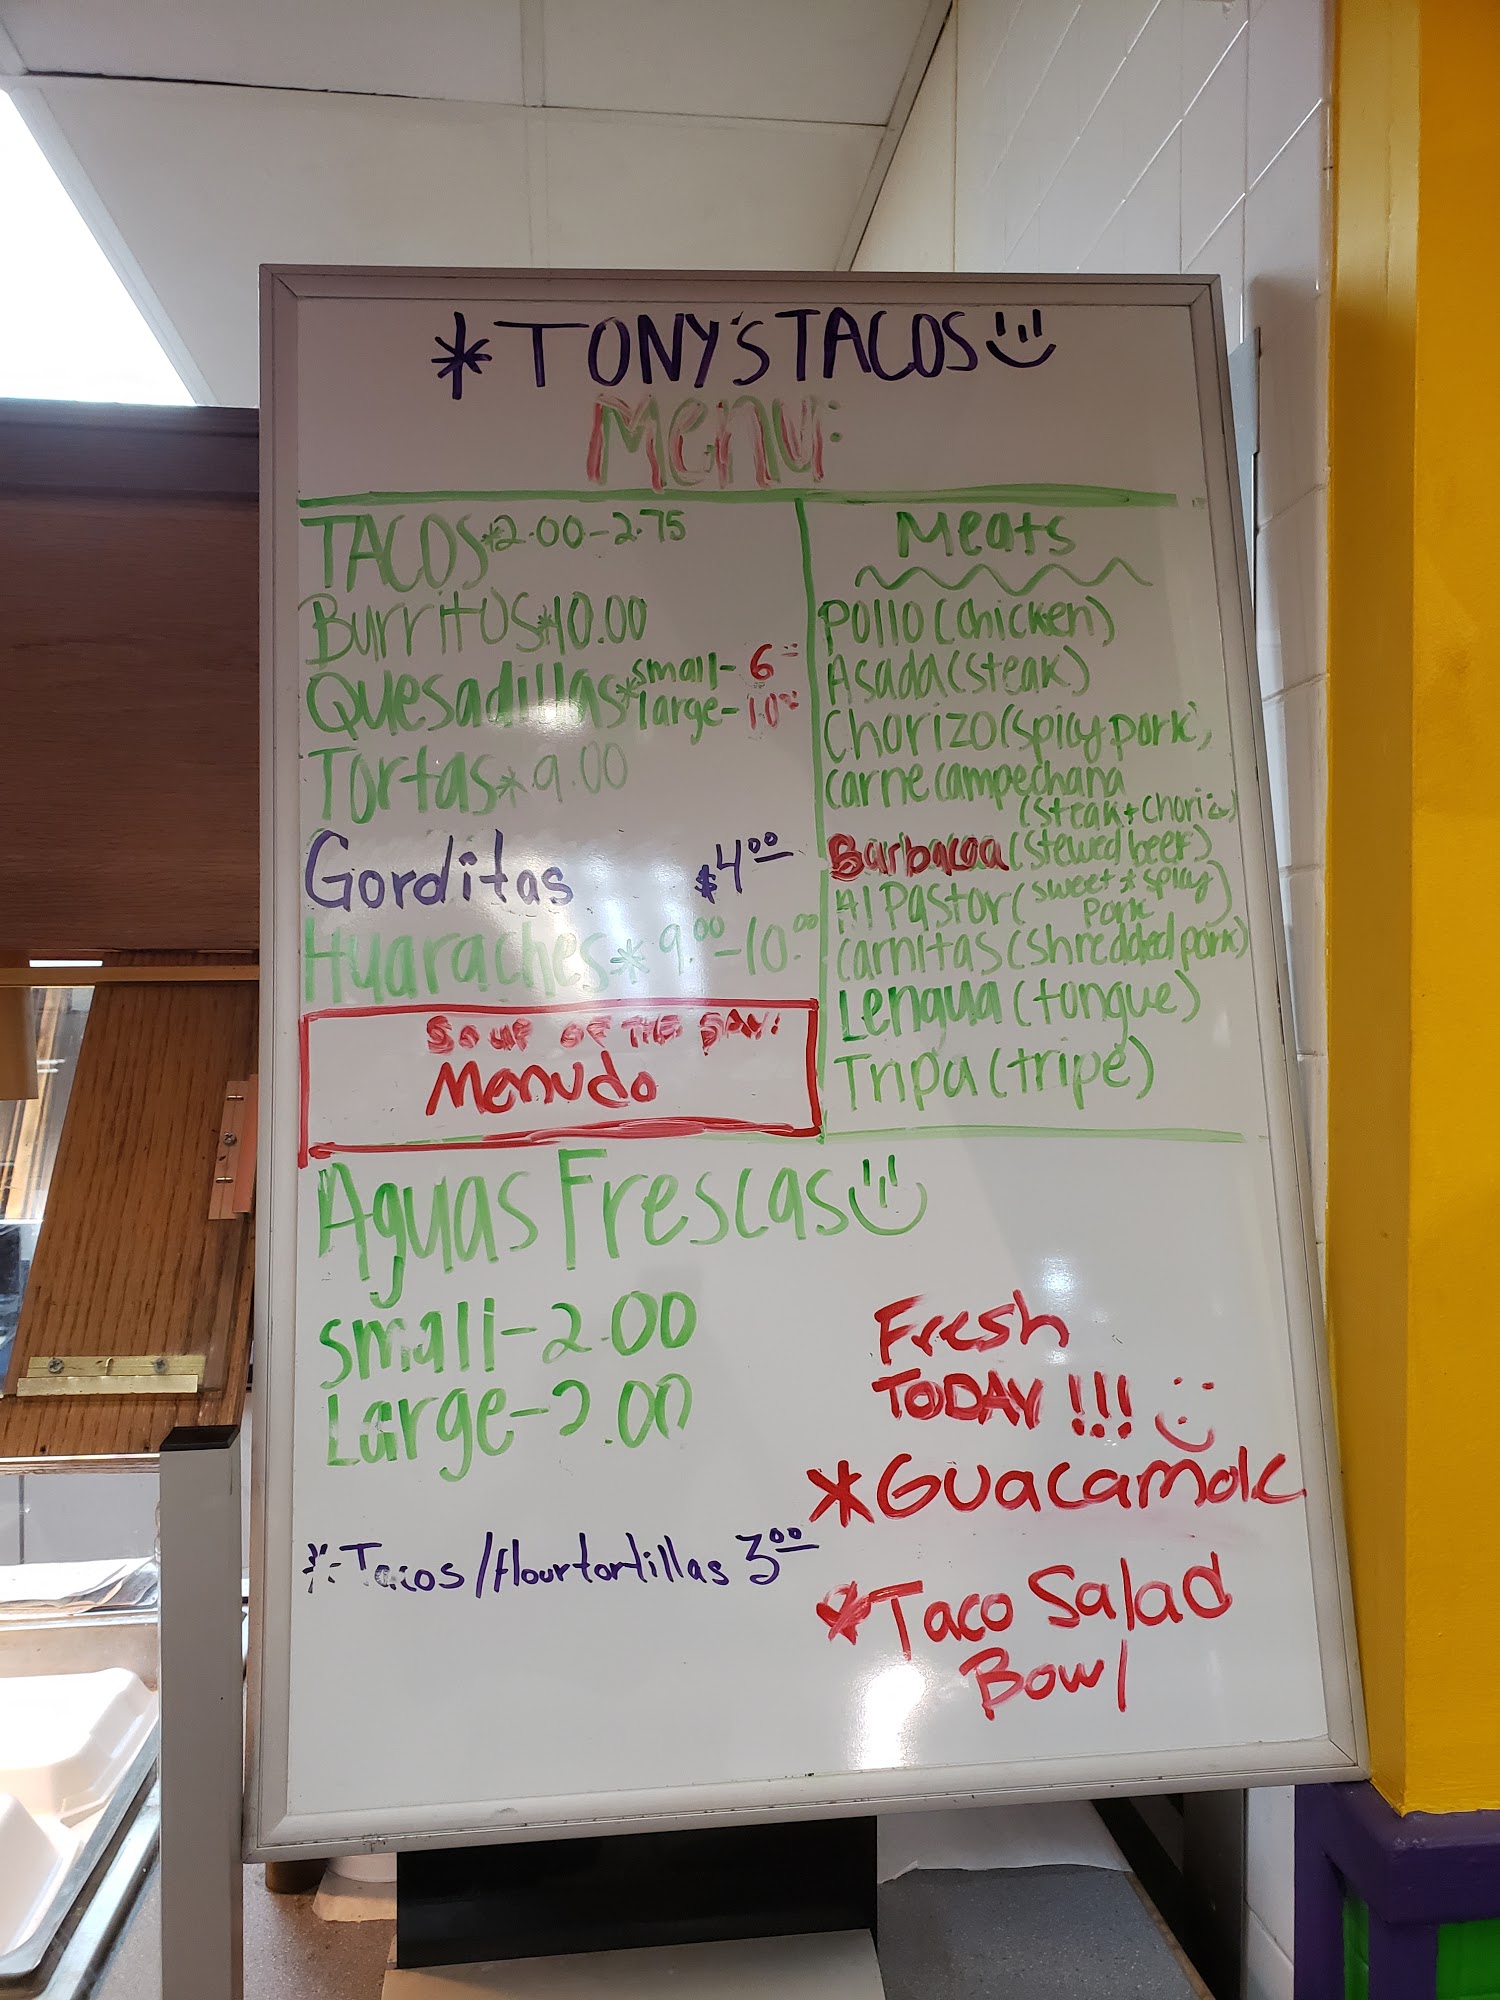 *TONY'S TACOS
Menu:
TACOS*2.00-2.75
Burritos*10.00
Quesadillas*small-6
large-10
Tortas*9.00
Gorditas $4.00
Huaraches*9.00-10.00
SOUP OF THE DAY:
Menudo
Meats
Pollo(chicken)
Asada(steak)
Chorizo(spicy pork)
Carne Campechana
(steak+chorizo)
Barbacoa(stewed beef)
Al Pastor(sweet * spicy
pork)
Carnitas(shredded pork)
Lengua(tongue)
Tripa(tripe)
Aguas Frescas
small-2.00
Large-3.00
*Tacos/flour tortillas 3.00
Fresh
TODAY!!!
*Guacamole
*Taco Salad
Bowl